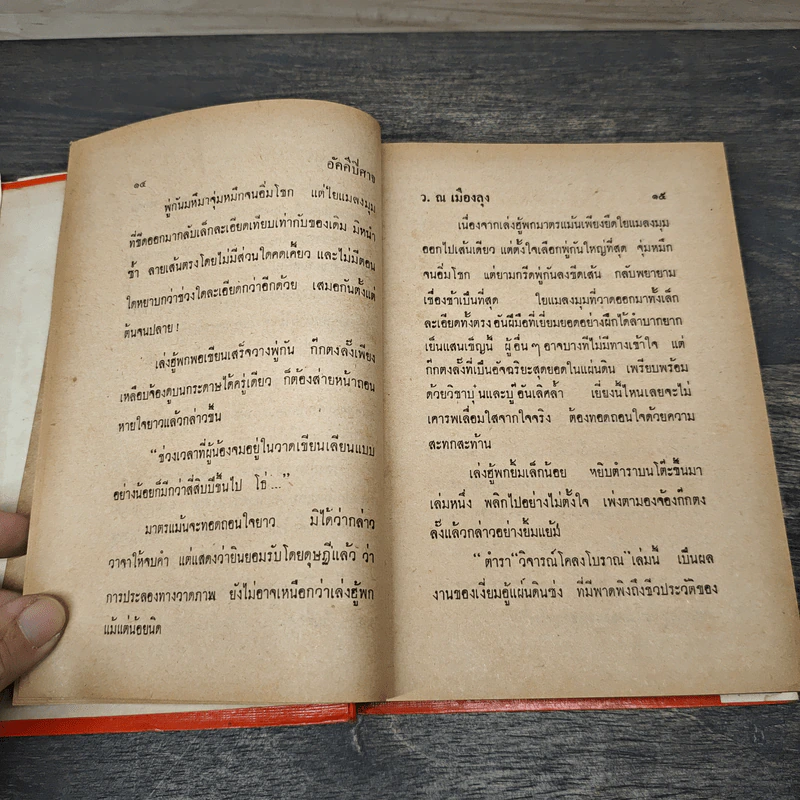 ๑๔ อัคคีปีศาจ
พู่กันมหึมาจุ่มหมึกจนอิ่มโชก แต่ใยแมลงมุม
ที่ขีดออกมากลับเล็กละเอียดเทียบเท่ากับของเดิม มิหนำ
ซ้ำ ลายเส้นตรงโดยไม่มีส่วนใดคดเคี้ยว และไม่มีตอน
ใดหยาบกว่าช่วงใดละเอียดกว่าอีกด้วย เสมอกันตั้งแต่
ต้นจนปลาย !
เล่งฮู้พกพอเขียนเสร็จวางพู่กัน ก๊กตงลั้งเพียง
เหลือบจ้องดูบนกระดาษได้ครู่เดียว ก็ต้องส่ายหน้าถอน
หายใจยาวแล้วกล่าวขึ้น
“ช่วงเวลาที่ผู้น้องจมอยู่ในวาดเขียนเลียนแบบ
อย่างน้อยก็มีกว่าสี่สิบปีขึ้นไป โธ่ ...”
มาตรแม้นจะทอดถอนใจยาว มิได้ว่ากล่าว
วาจาให้จบคำ แต่แสดงว่ายินยอมรับโดยดุษฎีแล้ว ว่า
การประลองทางวาดภาพ ยังไม่อาจเหนือกว่าเล่งฮู้พก
แม้แต่น้อยนิด
ว. ณ เมืองลุง ๑๕
เนื่องจากเล่งฮู้พกมาตรแม้นเพียงยืดใยแมลงมุม
ออกไปเส้นเดียว แต่ตั้งใจเลือกพู่กันใหญ่ที่สุด จุ่มหมึก
จนอิ่มโชก แต่ยามกรีดพู่กันลงขีดเส้น กลับพยายาม
เชื่องช้าเป็นที่สุด ใยแมลงมุมที่วาดออกมาทั้งเล็ก
ละเอียดทั้งตรง อันฝีมือที่เยี่ยมยอดอย่างฝึกได้ลำบากยาก
เย็นแสนเข็ญนี้ ผู้อื่น ๆ อาจบางทีไม่มีทางเข้าใจ แต่
ก๊กตงลั้งที่เป็นอัจฉริยะสุดยอดในแผ่นดิน เพรียบพร้อม
ด้วยวิชาบุ๋นและบู๊อันเลิศล้ำ เยี่ยงนี้ไหนเลยจะไม่
เคารพเลื่อมใสจากใจจริง ต้องทอดถอนใจด้วยความ
สะทกสะท้าน
เล่งฮู้พกยิ้มเล็กน้อย หยิบตำราบนโต๊ะขึ้นมา
เล่มหนึ่ง พลิกไปอย่างไม่ตั้งใจ เพ่งตามองจ้องก๊กตง
ลั้งแล้วกล่าวอย่างยิ้มแย้ม
“ตำรา“วิจารณ์โคลงโบราณ”เล่มนี้ เป็นผล
งานของเงี่ยมอู้แผ่นดินซ่ง ที่มีพาดพิงถึงชีวประวัติของ